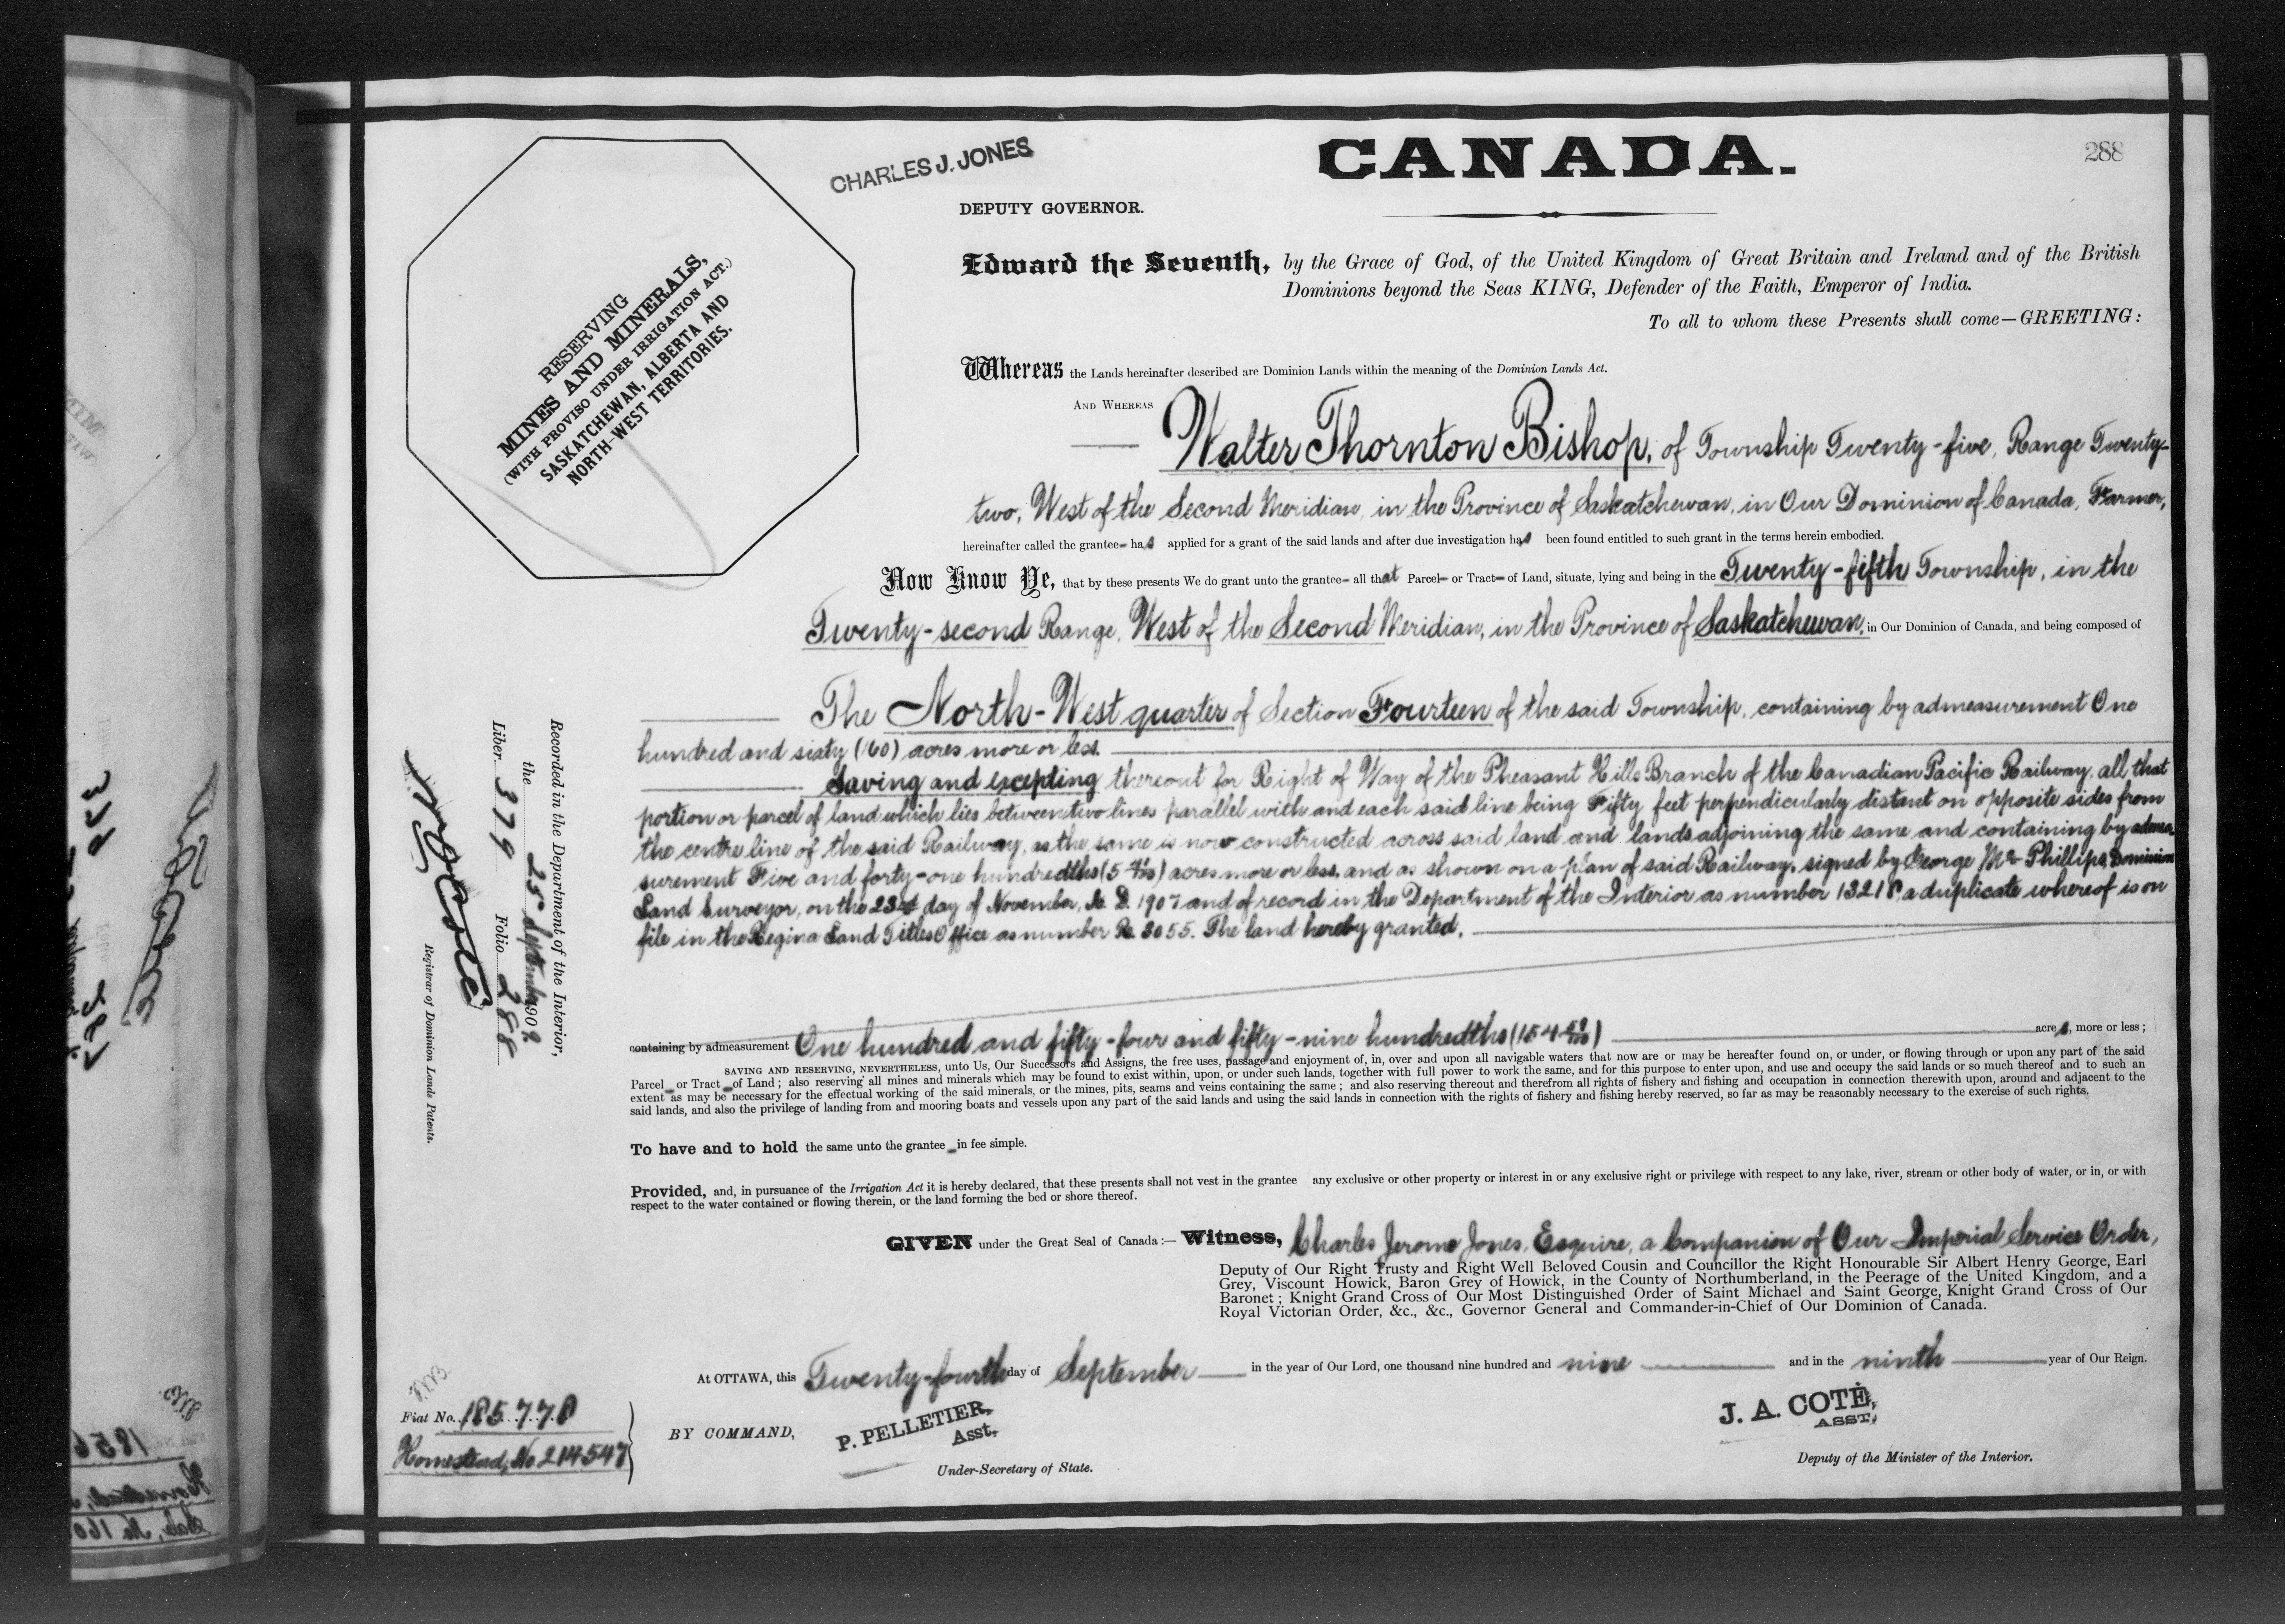 CANADA.
288
CHARLES J. JONES
DEPUTY GOVERNOR.
RESERVING
MINES AND MINERALS,
(WITH PROVISO UNDER IRRIGATION ACT.)
SASKATCHEWAN, ALBERTA AND
NORTH-WEST TERRITORIES.
Edward the Seventh, by the Grace of God, of the United Kingdom of Great Britain and Ireland and of the British
Dominions beyond the Seas KING, Defender of the Faith, Emperor of India.
To all to whom these Presents shall come—GREETING:
Whereas the Lands hereinafter described are Dominion Lands within the meaning of the Dominion Lands Act.
AND WHEREAS
Walter Thornton Bishop, of Township Twenty-five, Range Twenty-
two, West of the Second Meridian, in the Province of Saskatchewan, in Our Dominion of Canada, Farmer,
hereinafter called the grantee- has applied for a grant of the said lands and after due investigation has been found entitled to such grant in the terms herein embodied.
Now Know Ye, that by these presents We do grant unto the grantee- all that Parcel- or Tract- of Land, situate, lying and being in the Twenty-fifth Township, in the
Twenty-second Range, West of the Second Meridian, in the Province of Saskatchewan, in Our Dominion of Canada, and being composed of
The North-West quarter of Section Fourteen of the said Township, containing by admeasurement One
hundred and sixty (160) acres more or less.
Saving and excepting thereout for Right of Way of the Pheasant Hills Branch of the Canadian Pacific Railway, all that
portion or parcel of land which lies between two lines parallel with and each said line being Fifty feet perpendicularly distant on opposite sides from
the centre line of the said Railway, as the same is now constructed across said land and lands adjoining the same and containing by admea-
surement Five and forty-one hundredths (5 41/100) acres more or less, and as shown on a plan of said Railway, signed by George Mc Phillips, Dominion
Land Surveyor, on the 23rd day of November, A. D. 1907 and of record in the Department of the Interior as number a duplicate whereof is on
file in the Regina Land Titles Office as number R. 3055. The land hereby granted,
containing by admeasurement One hundred and fifty-four and fifty-nine hundredths (154 59/100) acres, more or less;
SAVING AND RESERVING, NEVERTHELESS, unto Us, Our Successors and Assigns, the free uses, passage and enjoyment of, in, over and upon all navigable waters that now are or may be hereafter found on, or under, or flowing through or upon any part of the said
Parcel- or Tract- of Land; also reserving all mines and minerals which may be found to exist within, upon, or under such lands, together with full power to work the same, and for this purpose to enter upon, and use and occupy the said lands or so much thereof and to such an
extent as may be necessary for the effectual working of the said minerals, or the mines, pits, seams and veins containing the same; and also reserving thereout and therefrom all rights of fishery and fishing and occupation in connection therewith upon, around and adjacent to the
said lands, and also the privilege of landing from and mooring boats and vessels upon any part of the said lands and using the said lands in connection with the rights of fishery and fishing hereby reserved, so far as may be reasonably necessary to the exercise of such rights.
To have and to hold the same unto the grantee- in fee simple.
Provided, and, in pursuance of the Irrigation Act it is hereby declared, that these presents shall not vest in the grantee any exclusive or other property or interest in or any exclusive right or privilege with respect to any lake, river, stream or other body of water, or in, or with
respect to the water contained or flowing therein, or the land forming the bed or shore thereof.
GIVEN under the Great Seal of Canada:— Witness, Charles Jerome Jones, Esquire, a Companion of Our Imperial Service Order,
Deputy of Our Right Trusty and Right Well Beloved Cousin and Councillor the Right Honourable Sir Albert Henry George, Earl
Grey, Viscount Howick, Baron Grey of Howick, in the County of Northumberland, in the Peerage of the United Kingdom, and a
Baronet; Knight Grand Cross of Our Most Distinguished Order of Saint Michael and Saint George, Knight Grand Cross of Our
Royal Victorian Order, &c., &c., Governor General and Commander-in-Chief of Our Dominion of Canada.
At OTTAWA, this Twenty-fourth day of September in the year of Our Lord, one thousand nine hundred and nine and in the ninth year of Our Reign.
BY COMMAND,
P. PELLETIER,
Asst.
Under-Secretary of State.
J. A. COTÉ,
ASST.
Deputy of the Minister of the Interior.
Fiat No. 185778
Homestead, No 214547
Recorded in the Department of the Interior,
the 25 September 1909.
Liber 379 Folio 288
Registrar of Dominion Lands Patents.